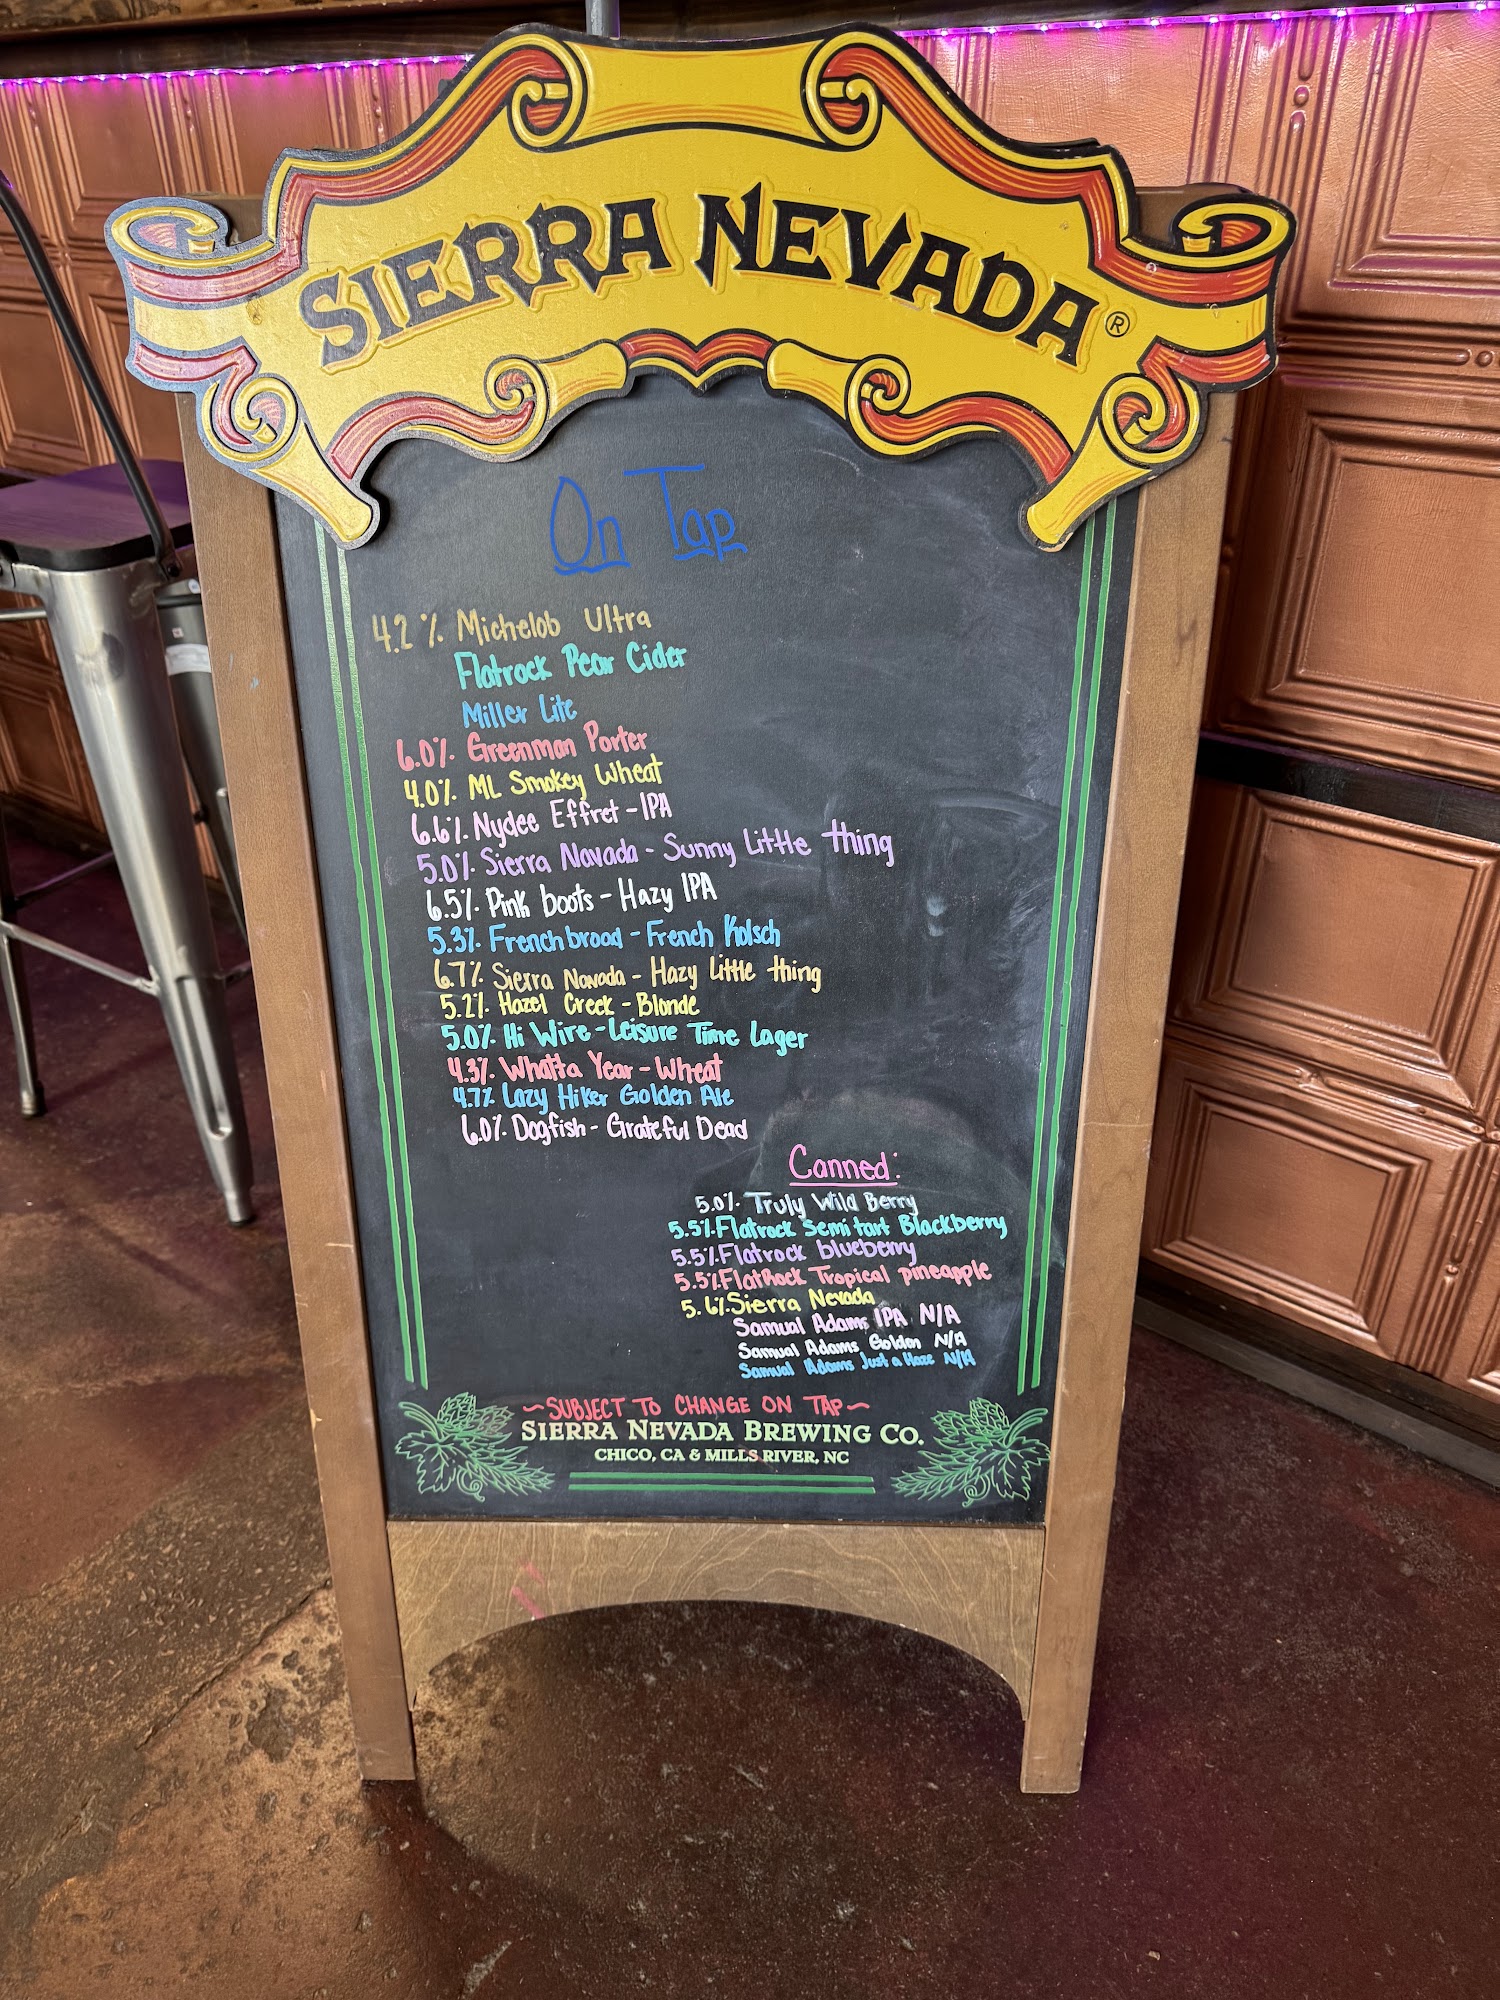 SIERRA NEVADA®
On Tap
4.2% Michelob Ultra
Flatrock Pear Cider
Miller Lite
6.0% Greenman Porter
4.0% ML Smokey Wheat
6.6% Nydee Effret - IPA
5.0% Sierra Navada - Sunny Little thing
6.5% Pink boots - Hazy IPA
5.3% French broad - French Kolsch
6.7% Sierra Navada - Hazy Little thing
5.2% Hazel Creek - Blonde
5.0% Hi Wire - Leisure Time Lager
4.3% Whatta Year - Wheat
4.7% Lazy Hiker Golden Ale
6.0% Dogfish - Grateful Dead
Canned:
5.0% Truly Wild Berry
5.5% Flatrock Semi tart Blackberry
5.5% Flatrock blueberry
5.5% FlatRock Tropical pineapple
5.6% Sierra Nevada
Samual Adams IPA N/A
Samual Adams Golden N/A
Samual Adams Just a Haze N/A
~SUBJECT TO CHANGE ON TAP~
SIERRA NEVADA BREWING CO.
CHICO, CA & MILLS RIVER, NC